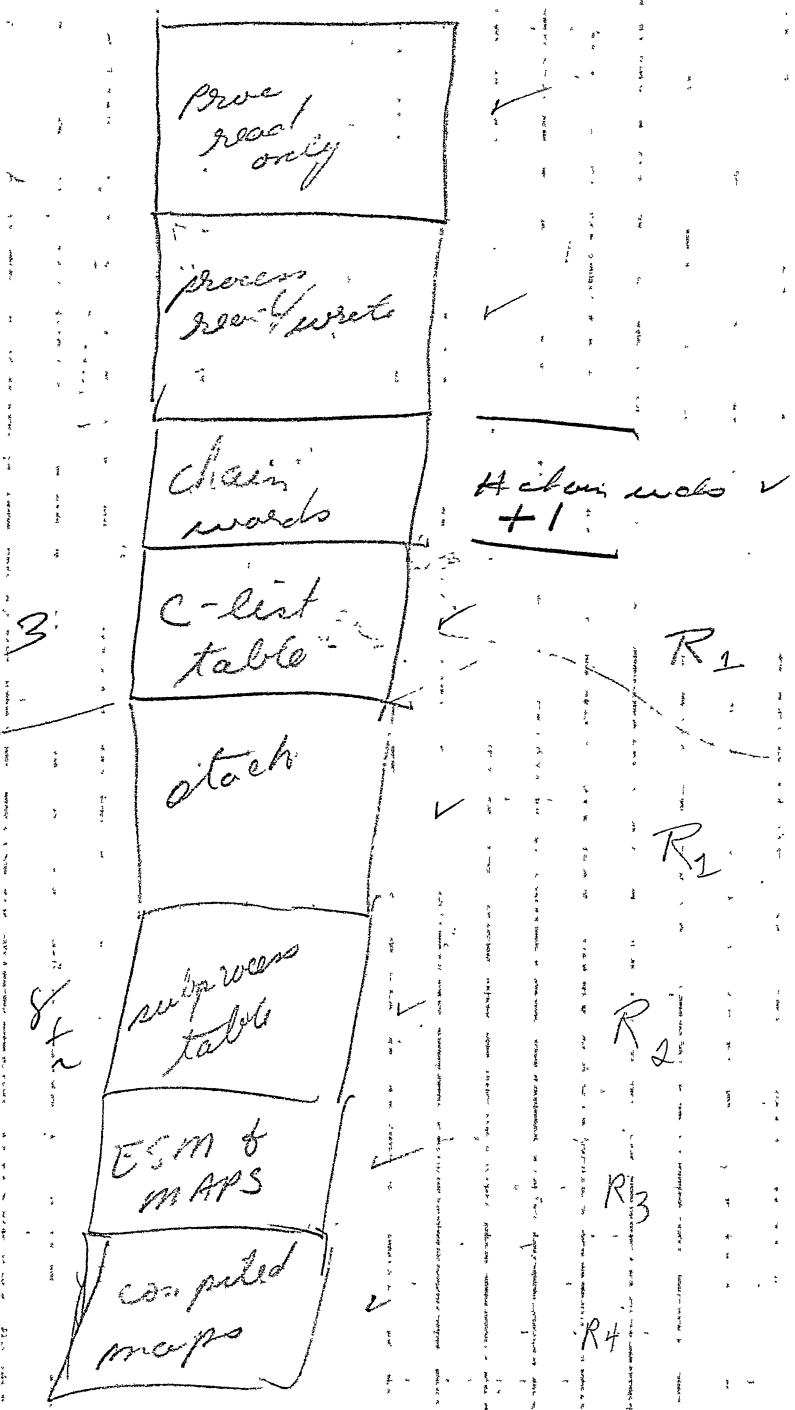 proc
read
only
process
read/write
chain
words
# chain wds
+1
C-list
table
3
R1
stack
R1
subprocess
table
8
R2
ESM &
MAPS
R3
computed
maps
R4